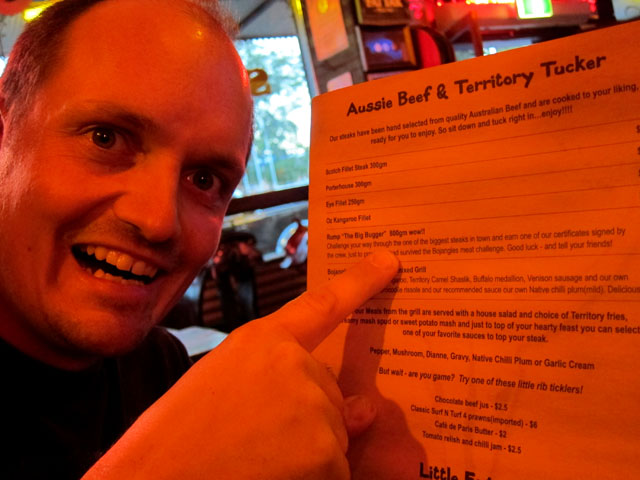 Aussie Beef & Territory Tucker
Our steaks have been hand selected from quality Australian Beef and are cooked to your liking,
ready for you to enjoy. So sit down and tuck right in...enjoy!!!!
Scotch Fillet Steak 300gm
Porterhouse 300gm
Eye Fillet 250gm
Oz Kangaroo Fillet
Rump "The Big Bugger" 800gm wow!!
Challenge your way through the one of the biggest steaks in town and earn one of our certificates signed by
the crew, just to survived the Bojangles meat challenge. Good luck - and tell your friends!
Mixed Grill
Territory Camel Shaslik, Buffalo medallion, Venison sausage and our own
rissole and our recommended sauce our own Native chilli plum(mild). Delicious
our Meals from the grill are served with a house salad and choice of Territory fries,
mash spud or sweet potato mash and just to top of your hearty feast you can select
one of your favorite sauces to top your steak.
Pepper, Mushroom, Dianne, Gravy, Native Chilli Plum or Garlic Cream
But wait - are you game? Try one of these little rib ticklers!
Chocolate beef jus - $2.5
Classic Surf N Turf 4 prawns(imported) - $6
Café de Paris Butter - $2
Tomato relish and chilli jam - $2.5
Little